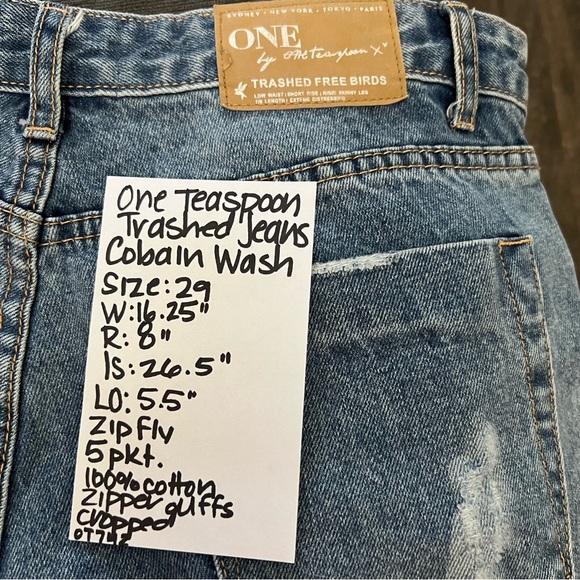 SYDNEY • NEW YORK • TOKYO • PARIS
ONE
by one teaspoon x
TRASHED FREE BIRDS
LOW WAIST | SHORT RISE | HIGH SKINNY LEG
One Teaspoon
Trashed Jeans
Cobain Wash
Size: 29
W: 16.25"
R: 8"
Is: 26.5"
LO: 5.5"
Zip fly
5 pkt.
100% cotton
Zipper cuffs
cropped